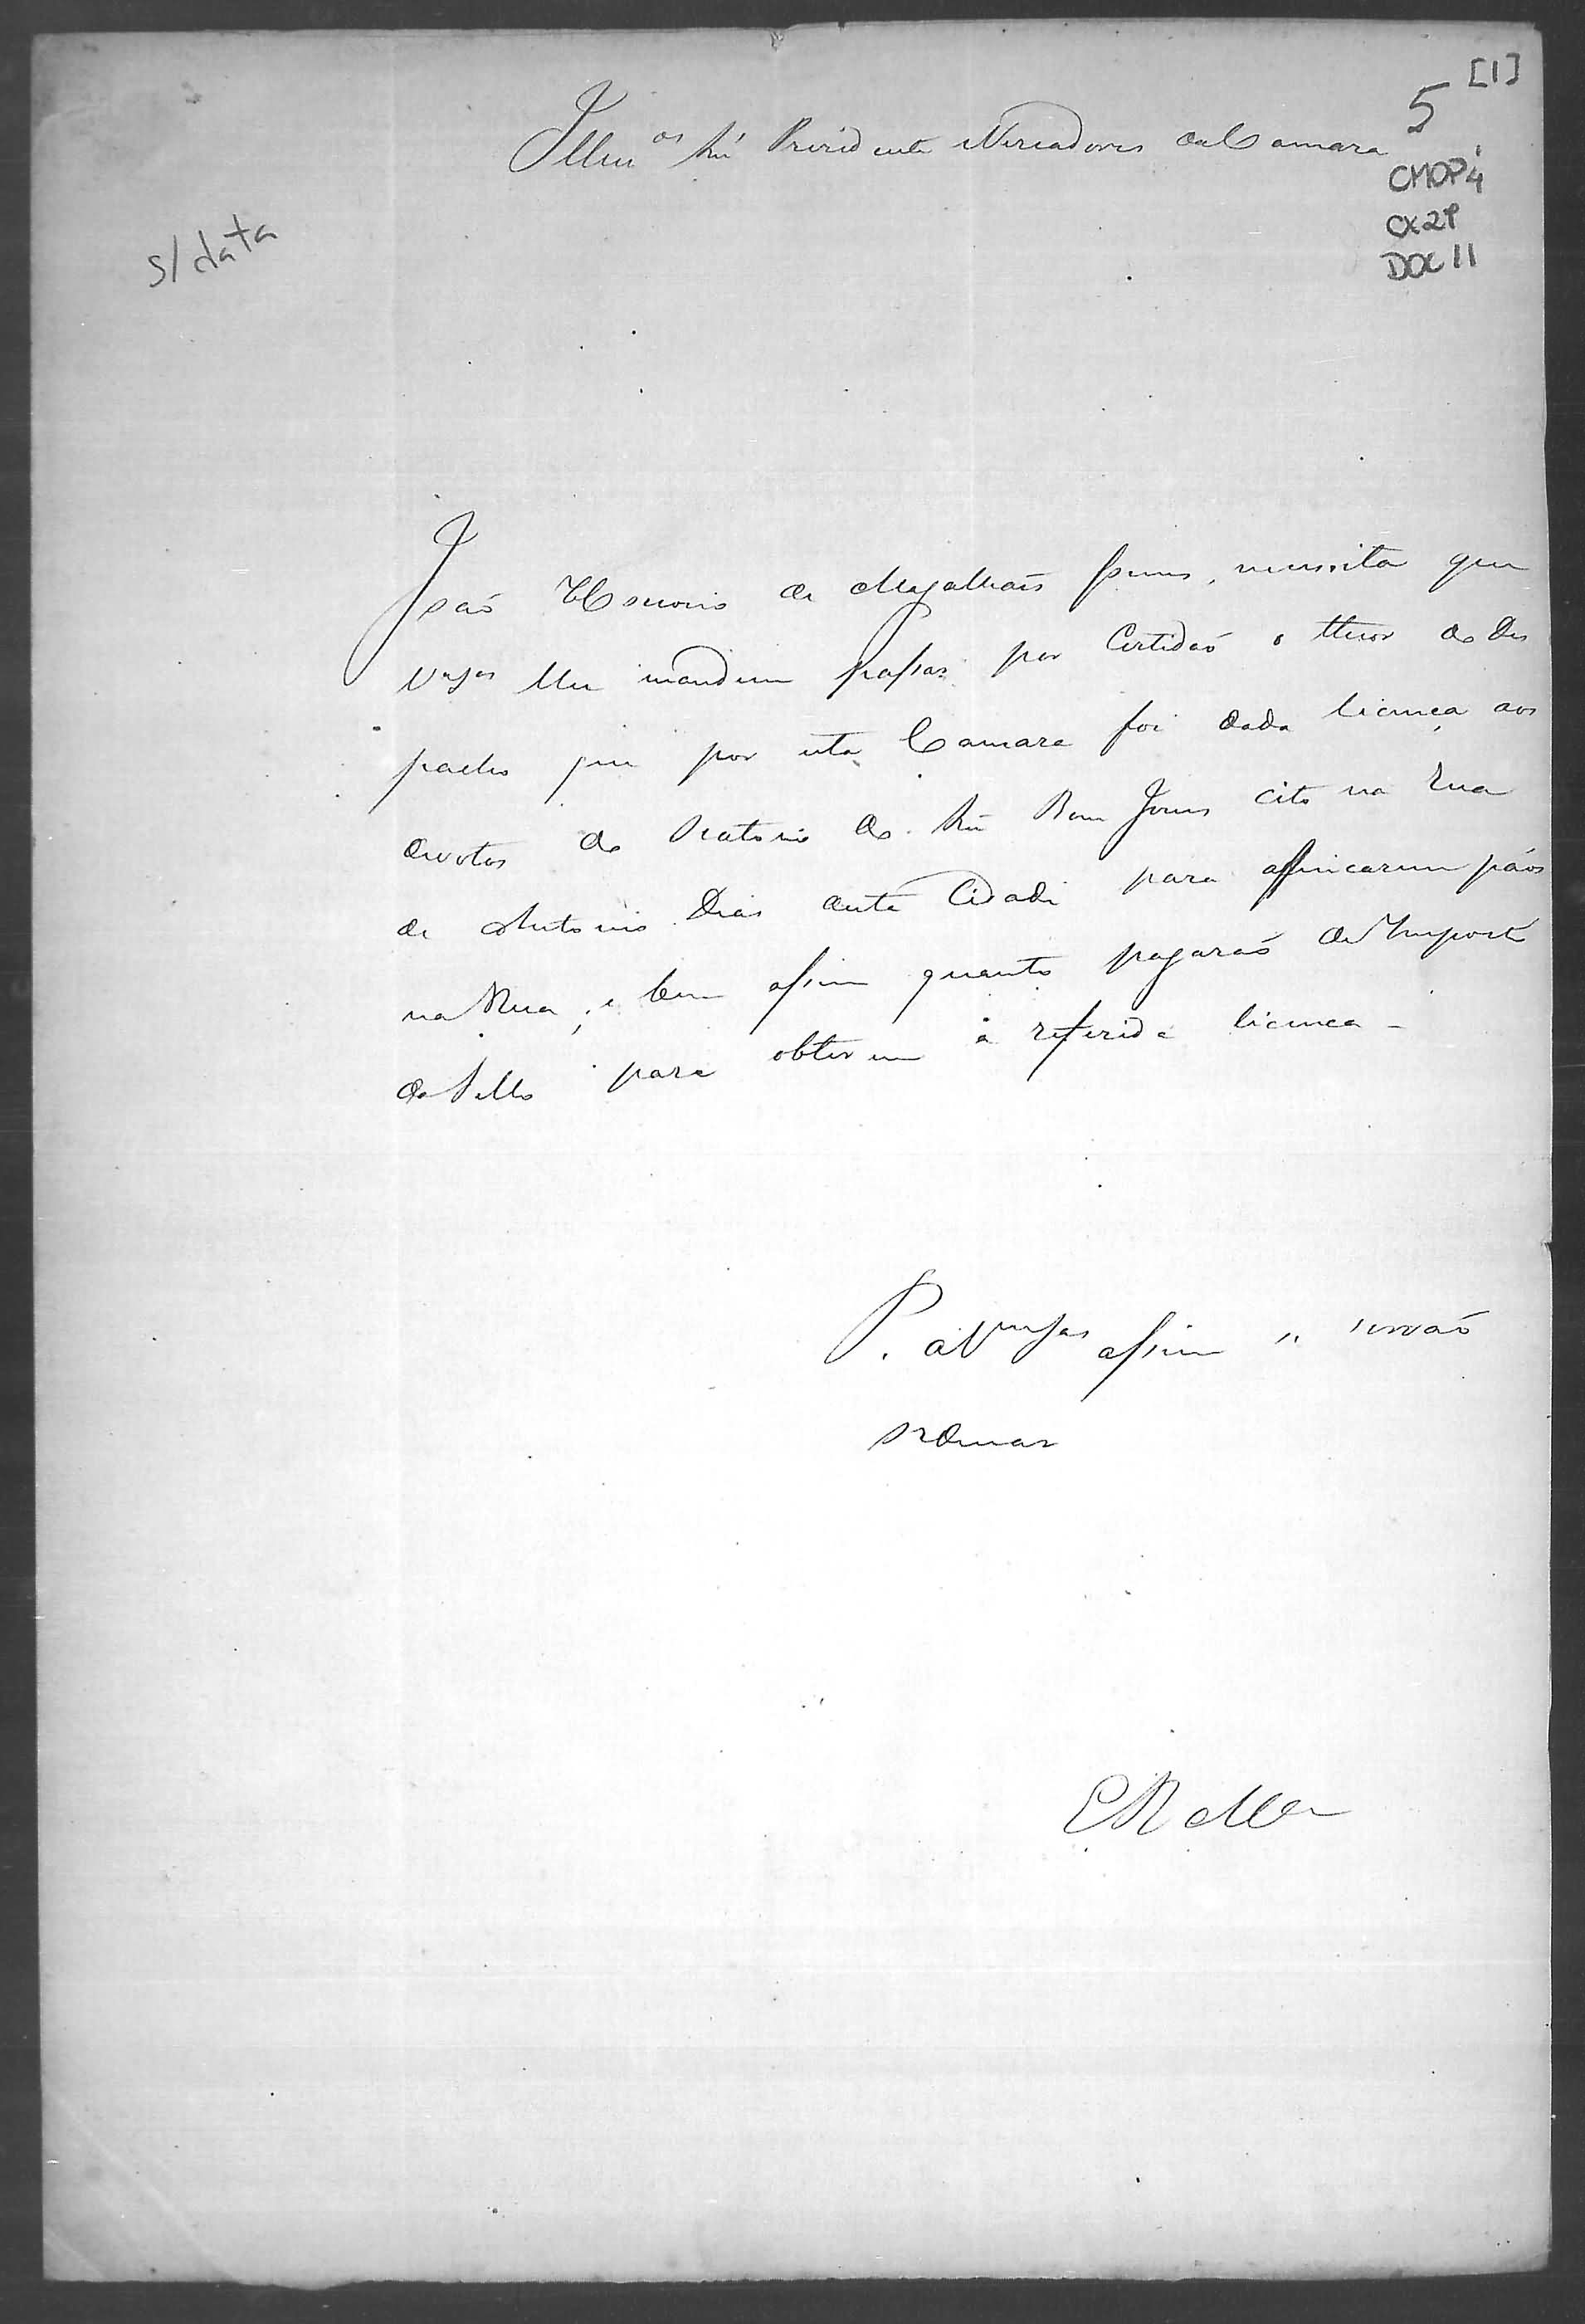 [1]
5
Illmos Snr Prezidente e Vereadores da Camara
CMOP 4
CX 29
DOC 11
s/ data
João de Magalhães necessita que
VaSas lhe mandem passar por Certidão o theor do Des
pacho que por esta Camara foi dada licença aos
devotos do Oratorio do Snr Bom Jesus cito na Rua
de Antonio Dias desta Cidade para affincarem páos
na Rua, e bem assim quanto pagarão de Imposto
de Sello para obterem a referida licenca
P. a VmSas assim o
ordenar
E R Mce